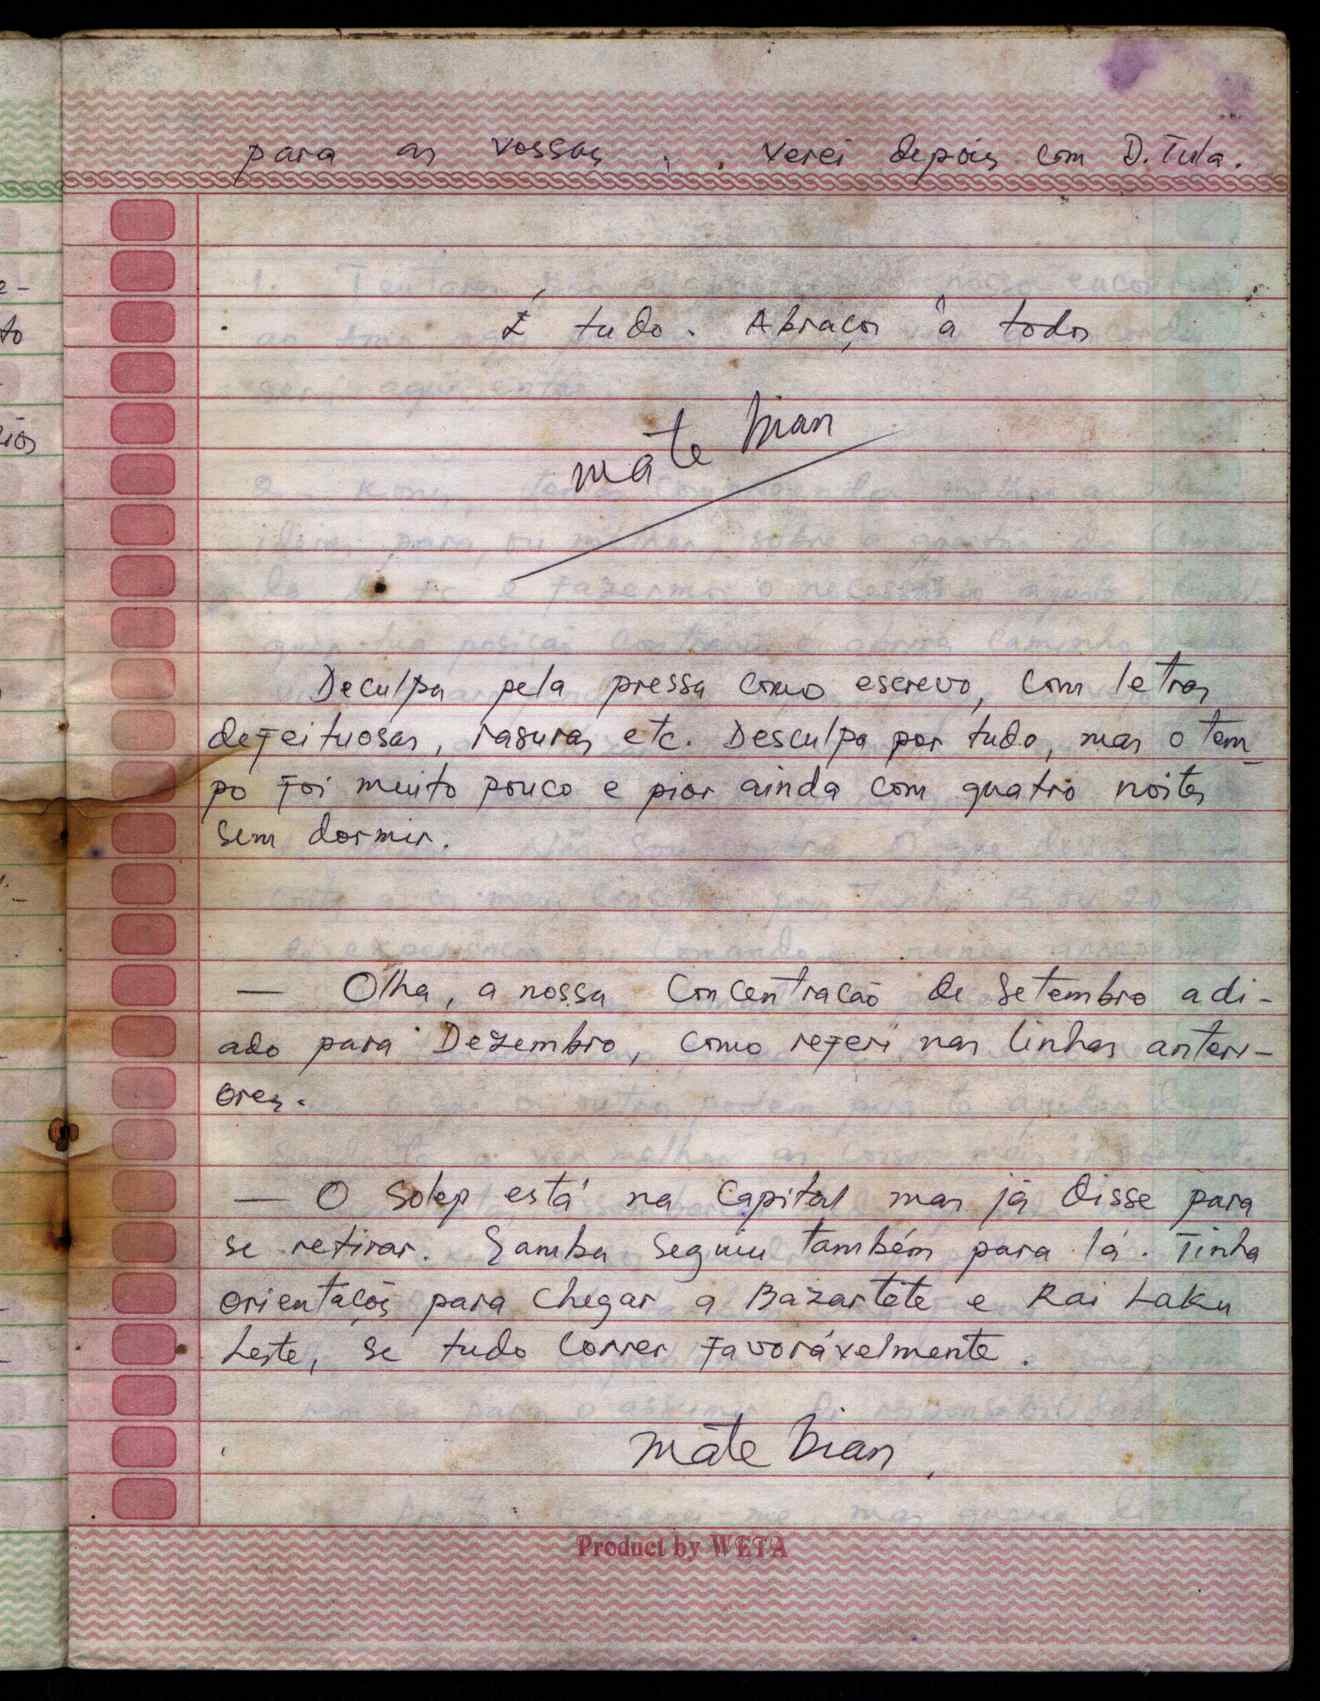 para as vossas . . Verei depois com D. Tula.
É tudo. Abraços à todos
mate bian
Deculpa pela pressa como escrevo, com letras
defeituosas, rasuras etc. Desculpa por tudo, mas o tem-
po foi muito pouco e pior ainda com quatro noites
sem dormir.
— Olha, a nossa Concentracão de Setembro adi-
ado para Dezembro, como referi nas linhas anteri-
ores.
— O Solep está na Capital mas já disse para
se retirar. Samba seguiu também para lá. Tinha
orientacõs para chegar a Bazartete e Rai Laku
Leste, se tudo correr favorávelmente.
Mate bian
Product by WETA